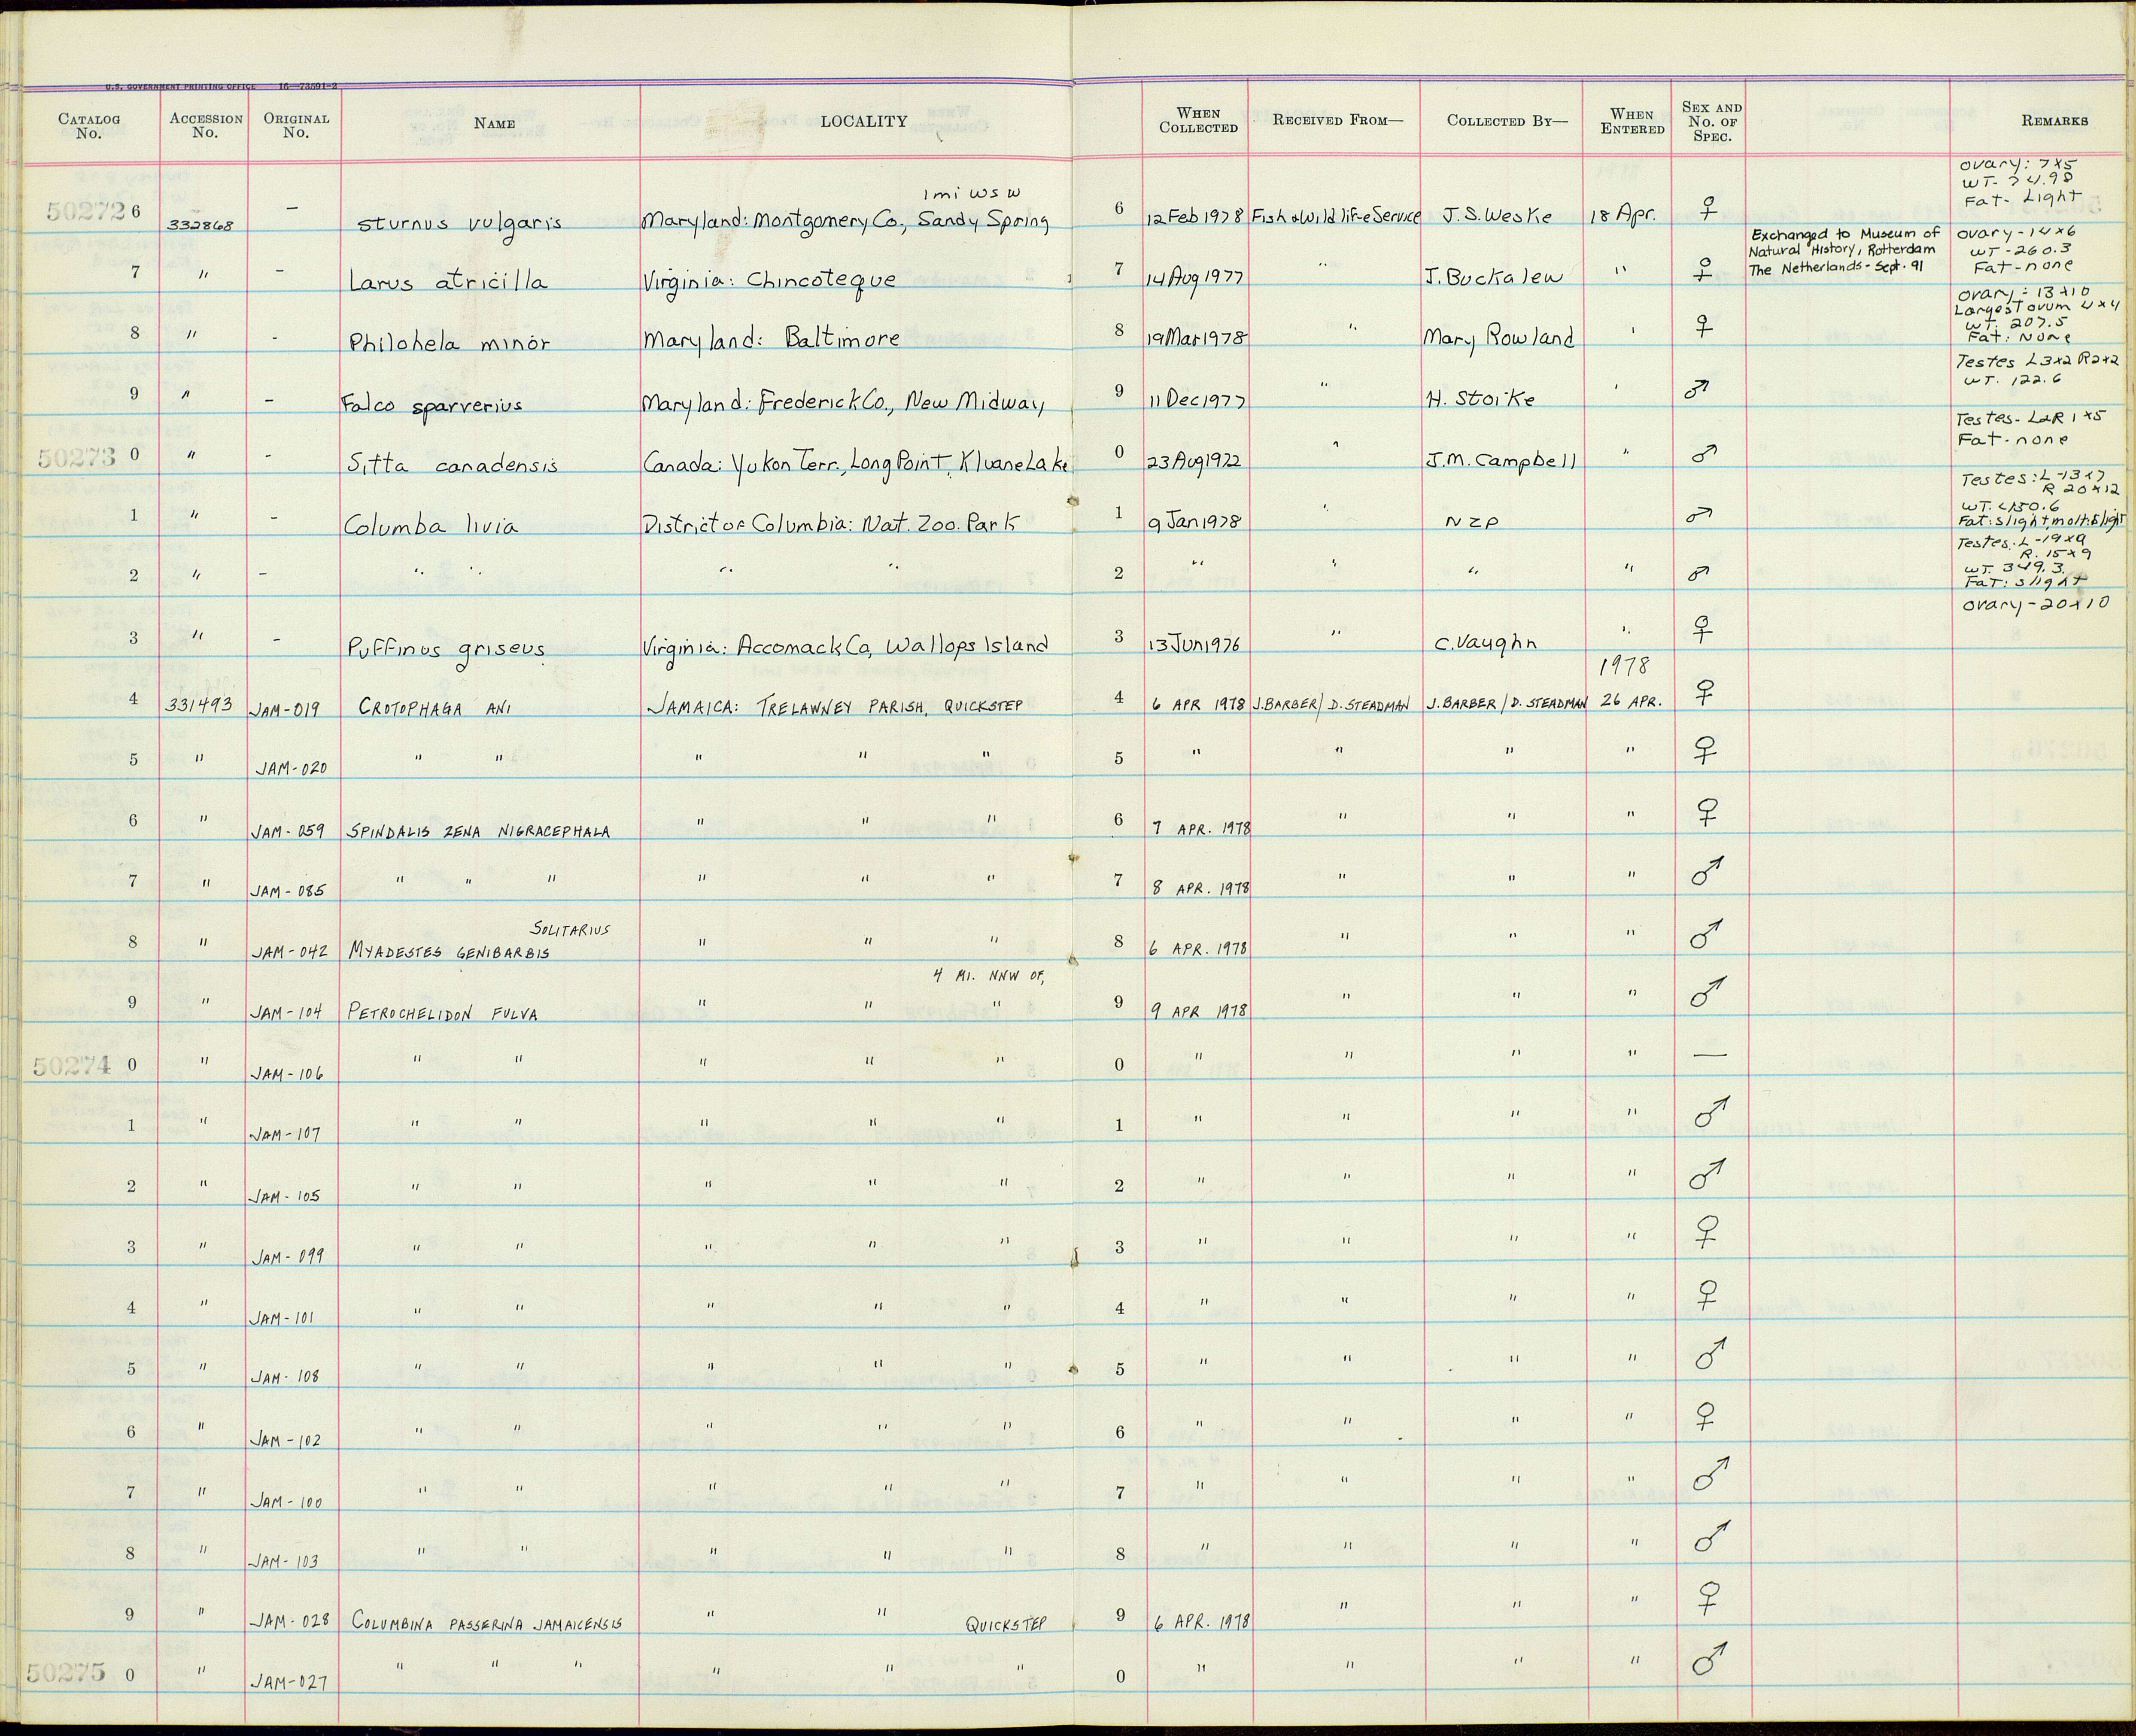 U.S. GOVERNMENT PRINTING OFFICE 16—73591-2
CATALOG No. ACCESSION No. ORIGINAL No. NAME LOCALITY WHEN COLLECTED RECEIVED FROM— COLLECTED BY— WHEN ENTERED SEX AND No. OF SPEC. REMARKS
50272 6 332868 – Sturnus vulgaris Maryland: Montgomery Co., 1 mi WSW Sandy Spring 6 12 Feb 1978 Fish & Wildlife Service J.S. Weske 18 Apr. ♀ Ovary: 7x5 WT- 74.98 Fat- Light
7 " – Larus atricilla Virginia: Chincoteque 7 14 Aug 1977 " J. Buckalew " ♀ Exchanged to Museum of Natural History, Rotterdam The Netherlands - Sept. 91 Ovary-14x6 WT-260.3 Fat-none
8 " - Philohela minor Maryland: Baltimore 8 19 Mar 1978 " Mary Rowland " ♀ Ovary: 13x10 Largest ovum 4x4 WT: 207.5 Fat: None
9 " – Falco sparverius Maryland: Frederick Co., New Midway 9 11 Dec 1977 " H. Stoike " ♂ Testes L3x2 R2x2 WT. 122.6
50273 0 " - Sitta canadensis Canada: Yukon Terr., Long Point, Kluane Lake 0 23 Aug 1972 " J.M. Campbell " ♂ Testes- L&R 1x5 Fat-none
1 " – Columba livia District of Columbia: Nat. Zoo. Park 1 9 Jan 1978 " NZP ♂ Testes: L-13x7 R 20x12 WT. 450.6 Fat: slight, molt: slight
2 " – " " " " 2 " " " " ♂ Testes: L-19x9 R. 15x9 WT. 349.3 Fat: slight
3 " – Puffinus griseus Virginia: Accomack Co, Wallops Island 3 13 Jun 1976 " C. Vaughn " ♀ Ovary-20x10
1978
4 331493 JAM-019 CROTOPHAGA ANI JAMAICA: TRELAWNEY PARISH, QUICKSTEP 4 6 APR 1978 J. BARBER/D. STEADMAN J. BARBER/D. STEADMAN 26 APR. ♀
5 " JAM-020 " " " " " 5 " " " " ♀
6 " JAM-059 SPINDALIS ZENA NIGRACEPHALA " " " 6 7 APR. 1978 " " " ♀
7 " JAM-085 " " " " " " 7 8 APR. 1978 " " " ♂
8 " JAM-042 MYADESTES GENIBARBIS SOLITARIUS " " " 8 6 APR. 1978 " " " ♂
9 " JAM-104 PETROCHELIDON FULVA " " 4 MI. NNW OF, " 9 9 APR 1978 " " " ♂
50274 0 " JAM-106 " " " " " 0 " " " " —
1 " JAM-107 " " " " " 1 " " " " ♂
2 " JAM-105 " " " " " 2 " " " " ♂
3 " JAM-099 " " " " " 3 " " " " ♀
4 " JAM-101 " " " " " 4 " " " " ♀
5 " JAM-108 " " " " " 5 " " " " ♂
6 " JAM-102 " " " " " 6 " " " " ♀
7 " JAM-100 " " " " " 7 " " " " ♂
8 " JAM-103 " " " " " 8 " " " " ♂
9 " JAM-028 COLUMBINA PASSERINA JAMAICENSIS " " QUICKSTEP 9 6 APR. 1978 " " " ♀
50275 0 " JAM-027 " " " " " " 0 " " " " ♂